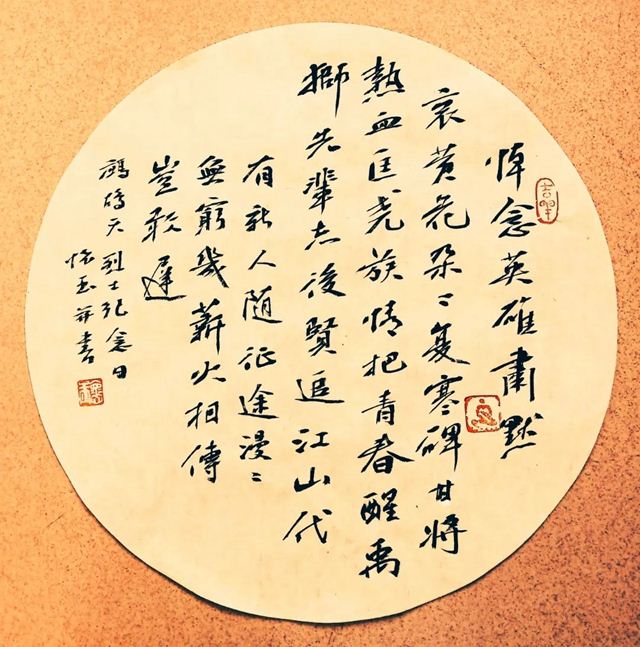 悼念英雄肅默
哀黄花朵々复寒碑甘將
熱血匡尧族情把青春醒禹
獅先輩志後賢追江山代
有新人随征途漫々
無窮幾薪火相傳
豈敢遲
鹧鸪天 烈士纪念日
怀玉并書